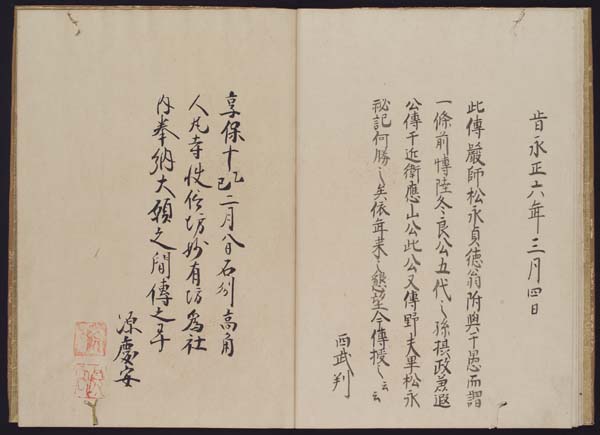 旹永正六年三月四日
此傳嚴師松永貞徳翁附與于愚而謂
一條前愽陸冬良公五代之孫摂政兼遐
公傳于近衛應山公此公又傳野夫畢松永
秘記何勝之矣依年来之懇望今傳授之云云
西武判
享保十乙巳二月八日石州高角
人丸寺住侶坊妙有坊為社
内奉納大願之間傳之了
源慶安